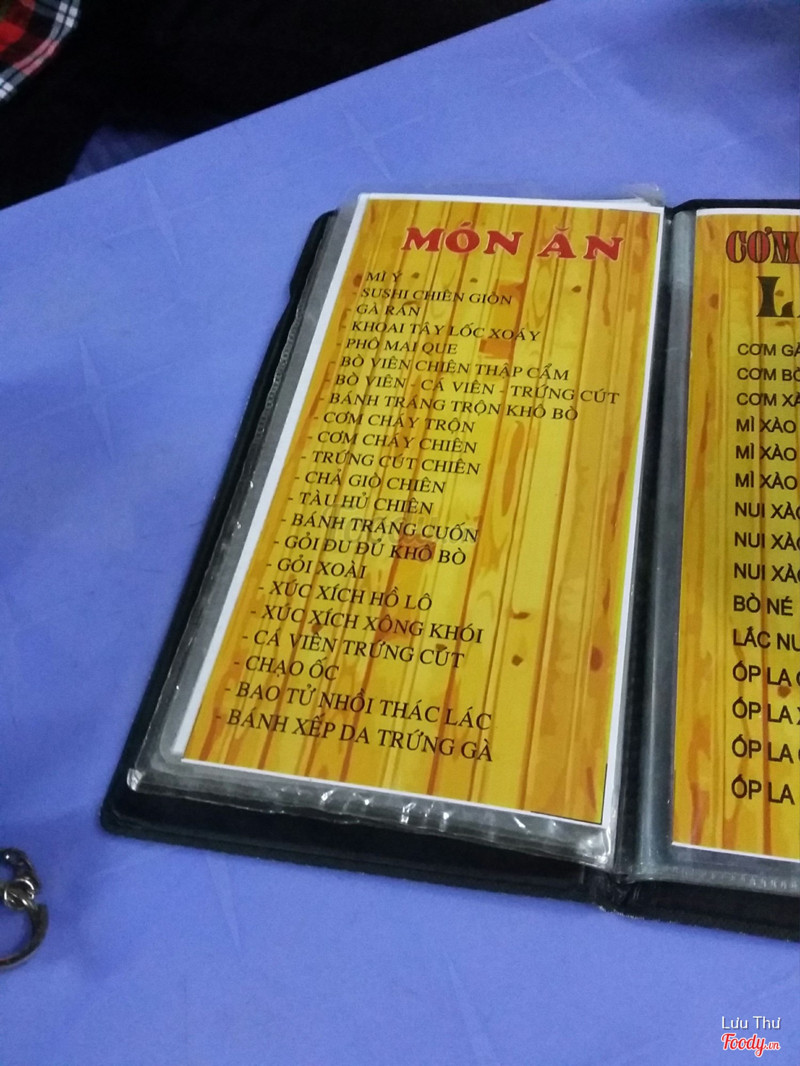 MÓN ĂN
- MÌ Ý
- SUSHI CHIÊN GIÒN
- GÀ RÁN
- KHOAI TÂY LỐC XOÁY
- PHÔ MAI QUE
- BÒ VIÊN CHIÊN THẬP CẨM
- BÒ VIÊN - CÁ VIÊN - TRỨNG CÚT
- BÁNH TRÁNG TRỘN KHÔ BÒ
- CƠM CHÁY TRỘN
- CƠM CHÁY CHIÊN
- TRỨNG CÚT CHIÊN
- CHẢ GIÒ CHIÊN
- TÀU HỦ CHIÊN
- BÁNH TRÁNG CUỐN
- GỎI ĐU ĐỦ KHÔ BÒ
- GỎI XOÀI
- XÚC XÍCH HỒ LÔ
- XÚC XÍCH XÔNG KHÓI
- CÁ VIÊN TRỨNG CÚT
- CHẠO ỐC
- BAO TỬ NHỒI THÁC LÁC
- BÁNH XẾP DA TRỨNG GÀ
CƠM
CƠM
CƠM
CƠM
MÌ XÀO
MÌ XÀO
MÌ XÀO
NUI
NUI
NUI
BÒ NÉ
LẮC
ỐP LA
ỐP LA
ỐP LA
ỐP LA
Lưu Thư
Foody.vn